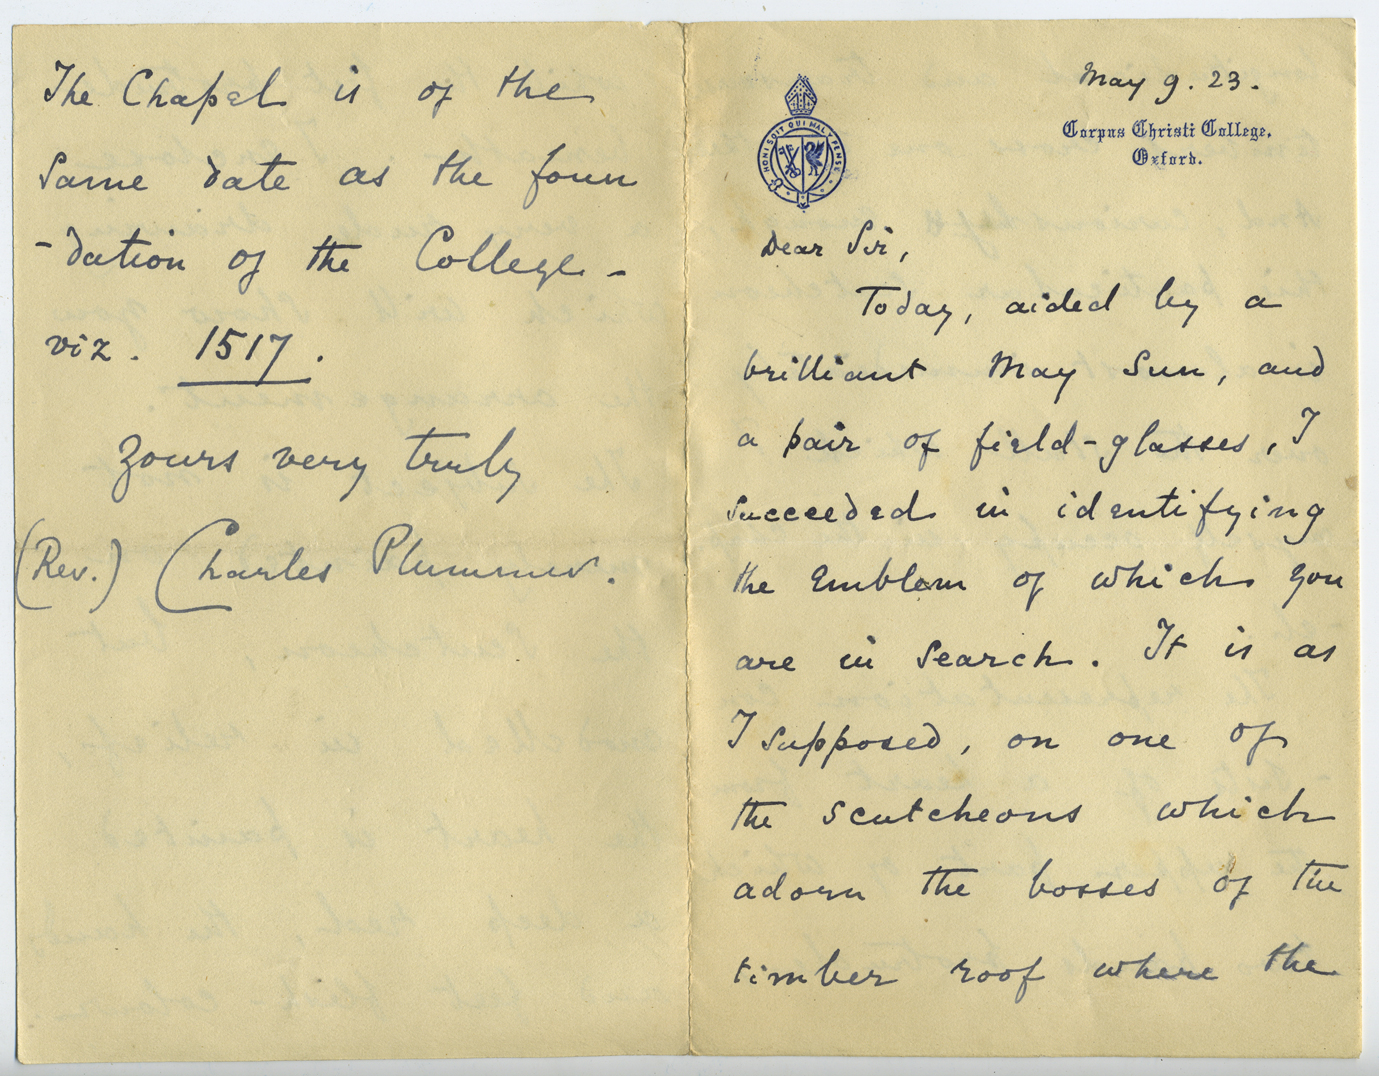 May 9. 23.
Corpus Christi College,
Oxford.
HONI SOIT QUI MAL Y PENSE
Dear Sir,
Today, aided by a
brilliant May Sun, and
a pair of field-glasses, I
succeeded in identifying
the Emblem of which you
are in search. It is as
I supposed, on one of
the scutcheons which
adorn the bosses of the
timber roof where the
The Chapel is of the
same date as the foun
-dation of the College -
viz. 1517.
Yours very truly
(Rev.) Charles Plummer.